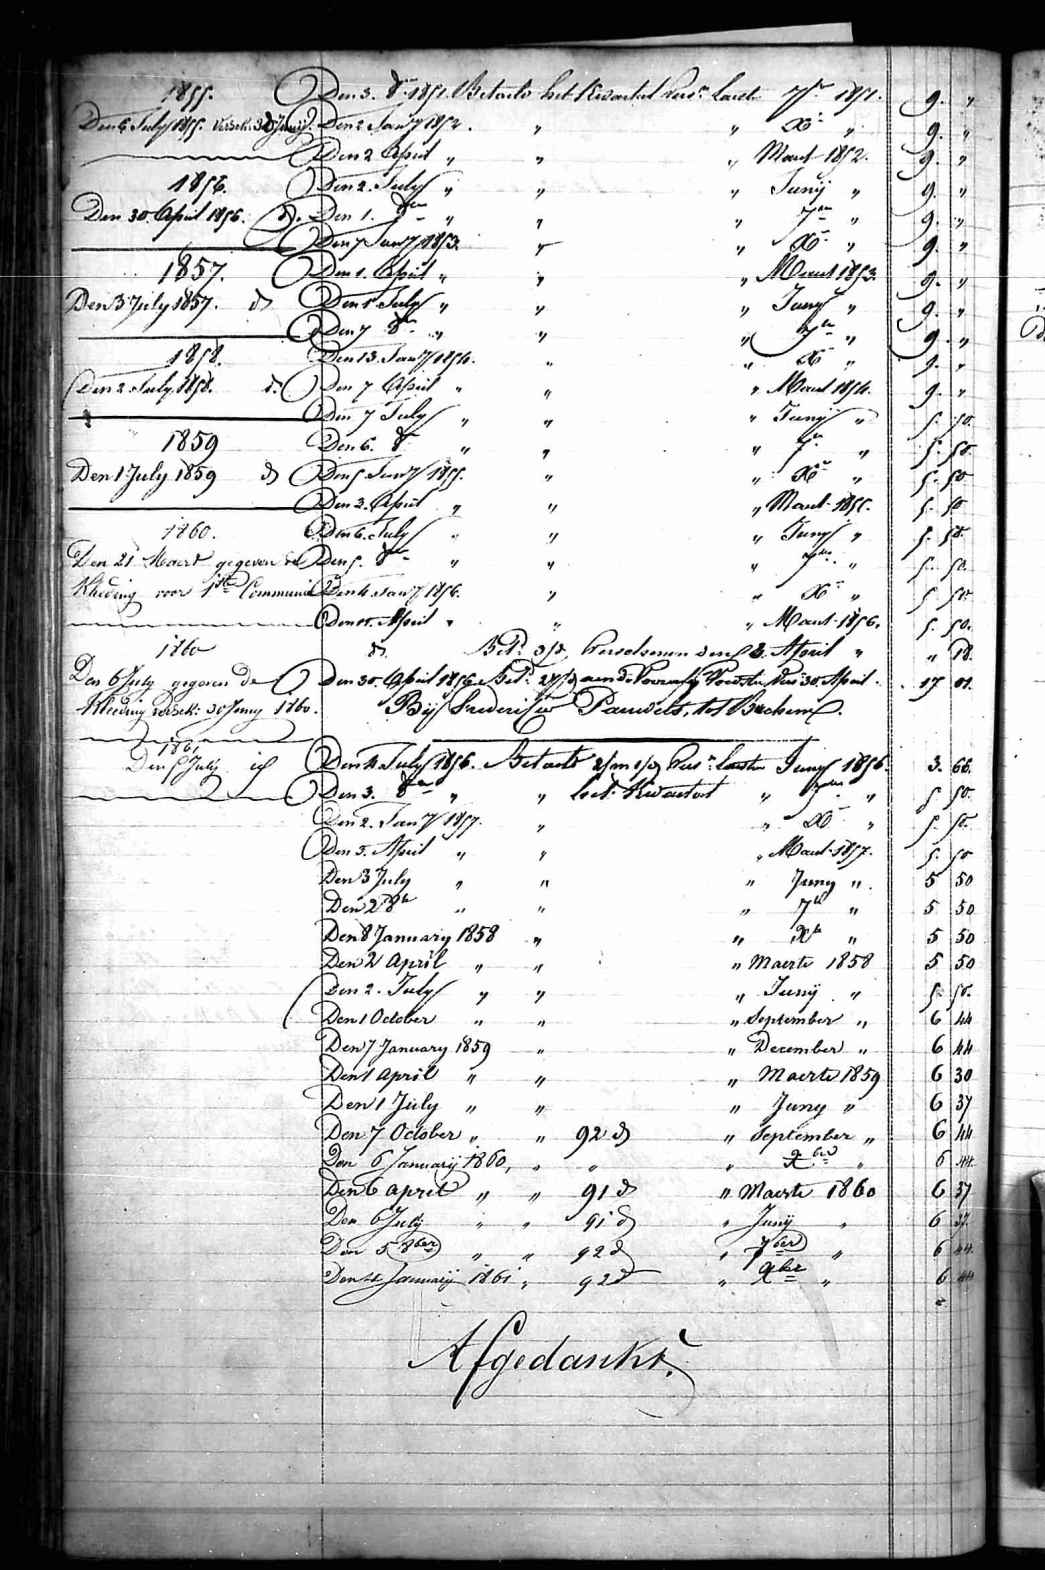 1855.
Den 6 July 1855. verseh: 30 Junij.
1856.
Den 30. April 1856. d°.
1857.
Den 3 July 1857. d°
1858.
Den 2. July 1858. d°.
1859
Den 1 July 1859 d°
1860.
Den 21 Maert gegeven de
Kleeding voor 1ste Communie
1860
Den 6 July gegeven de
Kleeding verseh: 30 Juny 1860.
1861
Den 5 July id
Den 3. 8er 1851. Betaelt het Kwartael 7er 1851. 9. "
Den 2 Jany 1852. " " Xer " 9. "
Den 2 April " " " Maert 1852. 9. "
Den 2. July " " " Junij " 9. "
Den 1. 8er " " " 7er " 9. "
Den 7 Jany 1853. " " Xer " 9. "
Den 1. April " " " Maert 1853. 9. "
Den 5 July " " " Juny " 9. "
Den 7 8er " " " 7er " 9. "
Den 13. Jany 1854. " " Xer " 9. "
Den 7 April " " " Maert 1854. 9. "
Den 7 July " " " Junij " 5. 50.
Den 6. 8er " " " 7er " 5. 50
Den 5 Jany 1855. " " Xer " 5. 50
Den 2. April " " " Maert 1855. 5. 50
Den 6. July " " " Juny " 5. 50.
Den 5. 8er " " " 7er " 5. 50
Den 4 Jany 1856. " " Xer " 5 50.
Den April " " " Maert 1856. 5. 50.
d°. Bet. den 3. April " " 18.
Den 30. April 1856. Bet. 30 April. 17 01.
Bij Frederik Pauwels, tot Bechem.
Den 4 July 1856. Betaelt Juny 1856. 3. 66.
Den 3. 8er " " het Kwartael " 7er " 5 50.
Den 2. Jany 1857. " " Xer " 5. 50.
Den 3. April " " " Maert 1857. 5. 50
Den 3 July " " " Juny " 5 50
Den 2 8er " " " 7er " 5 50
Den 8 January 1858 " " Xer " 5 50
Den 2 April " " " Maerte 1858 5 50
Den 2. July " " " Junij " 5. 50.
Den 1 October " " " September " 6 44
Den 7 January 1859 " " December " 6 44
Den 1 April " " " Maerte 1859 6 30
Den 1 July " " " Juny " 6 37
Den 7 October " " 92 d " September " 6 44
Den 6 Januarij 1860, " " " Xber " 6 44
Den 6 April " " 91 d " Maerte 1860 6 37
Den 6 July " " 91 d " Junij " 6 37.
Den 5 8ber " " 92 d " 7ber " 6 44
Den 4 Januarij 1861 " 92 d " Xber " 6 44
Afgedankt.